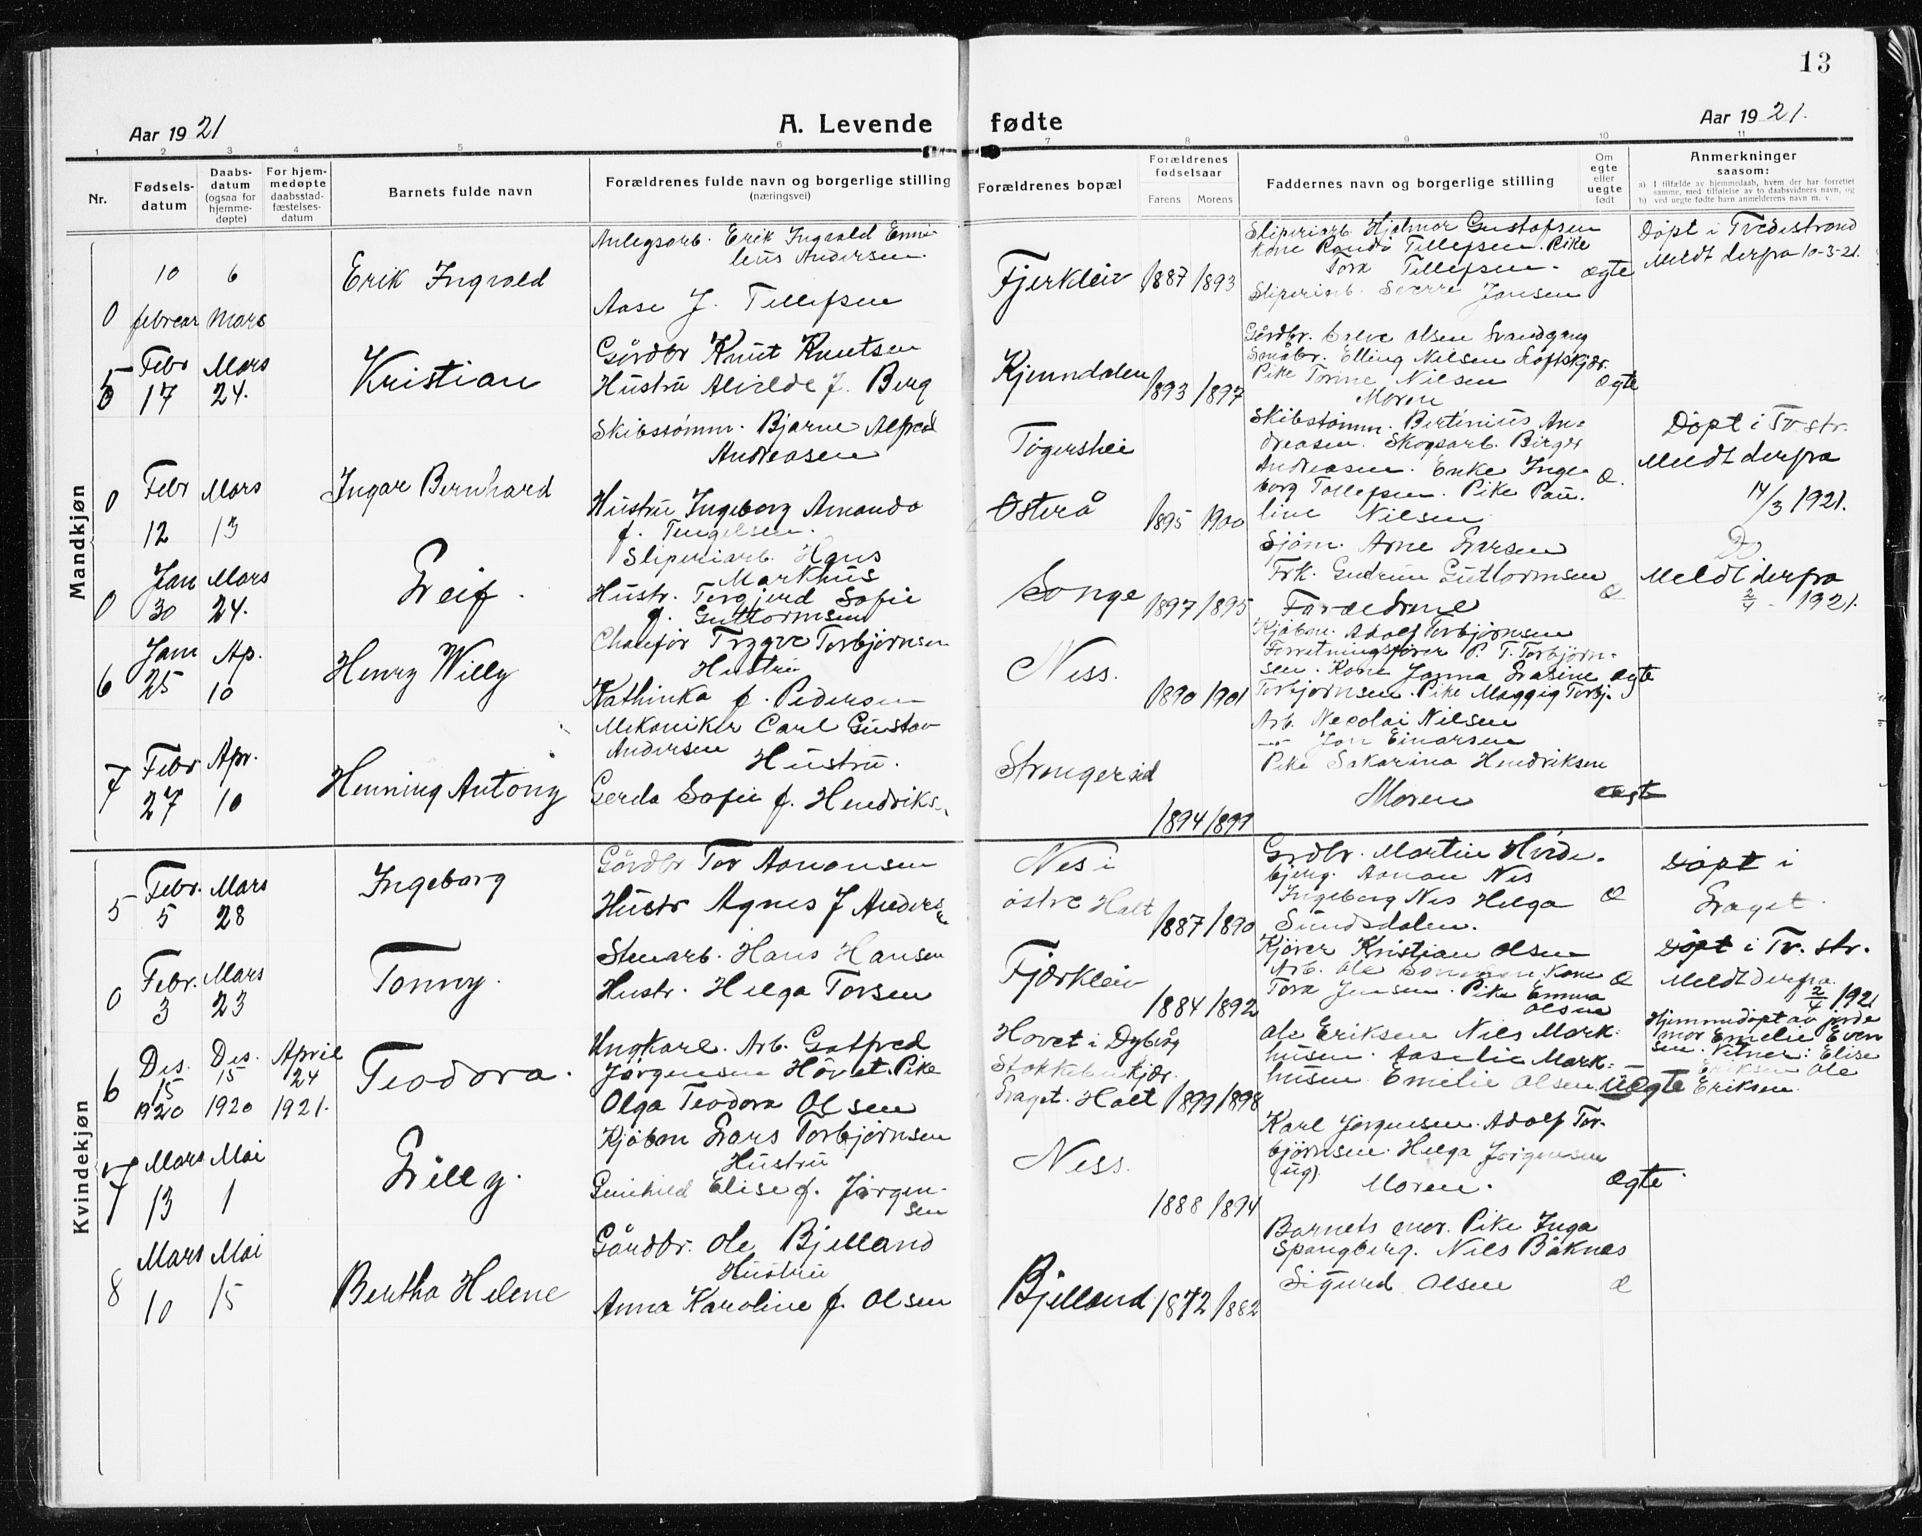 13
Aar 1921
A. Levende fødte
Aar 1921.
1 2 3 4 5 6 7 8 9 10 11
Nr.
Fødsels-
datum
Daabs-
datum
(ogsaa for
hjemme-
døpte)
For hjem-
medøpte
daabsstad-
fæstelses-
datum
Barnets fulde navn
Forældrenes fulde navn og borgerlige stilling
(næringsvei)
Forældrenes bopæl
Forældrenes
fødselsaar
Farens Morens
Faddernes navn og borgerlige stilling
Om
egte
eller
uegte
født
Anmerkninger
saasom:
a) I tilfælde av hjemmedaab, hvem der har forrettet
samme, med tilføielse av to daabsvidners navn, og
b) ved uegte fødte barn anmelderens navn m. v.
Mandkjøn
0
10 februar
6 Mars
Erik Ingvald
Anlegsarb. Erik Ingvald Emi-
lius Andersen.
Aase f. Tellefsen
Fjerkleiv
1887 1893
Sliperiarb. Hjalmar Gustafsen
Kone Randi Tellefsen. Pike
Tora Tellefsen.
Sliperiarb. Sverre Jansen
ægte
Døpt i Tvedestrand
Meldt derfra 10-3-21.
5
Febr 17
Mars 24.
Kristian
Gårdbr Knut Knutsen
Hustru Alvilde f. Berg
Kjenndalen
1893 1897
Gårdbr. Olsen
Småbr. Elling Nilsen
Pike Torine Nilsen
Moren
Ægte
0
Febr 12
Mars 13
Ingar Bernhard
Skibstømm. Bjarne Alfred
Andreasen
Hustru Ingeborg Amanda
f. Tengelsen.
Tøgershei
Østerå
1895 1900
Skibstømm. Bertinius An-
dreasen. Skogsarb. Birger
Andreasen. Enke Inge-
borg Tallefsen. Pike Pau-
line Nilsen
Æ.
Døpt i Tv.str.
Meldt derfra
14/3 1921.
0
Jan 30
Mars 24.
Leif.
Sliperiarb. Hans
Markhus
Hustr. Torgjerd Sofie
f. Guttormsen
Songe
1897 1895
Sjøm. Arne Larsen
Frk. Gudrun Guttormsen
Forældrene
Æ
Do
Meldt derfra
2/4 - 1921.
6
Jan 25
Ap. 10
Henry Willy
Chaufør Trygve Torbjørnsen
Hustru
Kathinka f. Pedersen
Ness.
1890 1901
Kjøbm. Adolf Torbjørnsen
Forretningsfører P. T. Torbjørn-
sen. Kone Janna Lasine
Torbjørnsen. Pike Maggig Torbj.
ægte
7
Febr 27
Apr. 10
Henning Antony
Mekaniker Carl Gustav
Andersen Hustru.
Gerda Sofie f. Hendriks.
Strengereid
1894 1899
Arb. Necolai Nilsen
— Jan Einarsen
Pike Sakarina Hendriksen
Moren
ægte
Kvindekjøn
5
Febr. 5
Mars 28
Ingeborg
Gårdbr Tor Aanonsen
Hustr Agnes f Anders.
Nes i
østre Holt
1887 1890
Grdbr. Martin Hvide-
bjerg. Aanon Nes
Ingeborg Nes Helga
Sundsdalen.
Æ
Døpt i
Laget.
0
Febr. 3
Mars 23
Tonny.
Stenarb. Hans Hansen
Hustr. Helga Torsen
Fjærkleiv
1884 1892
Kjører Kristian Olsen
Arb. Ole Kone
Tora Jensen. Pike Emma
Olsen
Æ
Døpt i Tv. str.
Meldt derfra
2/4 1921
6
Des. 15 1920
Des. 15 1920
April 24 1921.
Teodora.
Ungkarl. Arb. Gotfred
Jørgensen Hovet. Pike
Olga Teodora Olsen
Hovet i Dybvåg
Stokkebukjær.
Laget. Holt
1899 1898
Ole Eriksen Nils Mark-
husen. Aaselie Mark-
husen Emilie Olsen
Uegte
Hjemmedøpt av jorde
mor Emelie Even
sen. Vitner: Elise
Eriksen Ole
Eriksen.
7
Mars 13
Mai 1
Lilly.
Kjøbm Lars Torbjørnsen
Hustru
Gunhild Elise f. Jørgen-
sen
Ness.
1888 1894
Karl Jørgensen. Adolf Tor-
bjørnsen. Helga Jørgensen
(ug). Moren.
Ægte
8
Mars 10
Mai 15
Bertha Helene
Gårdbr. Ole Bjelland
Hustru
Anna Karoline f. Olsen
Bjelland
1872 1882
Barnets mor. Pike Inga
Spangberg. Nils Båknes
Sigurd Olsen
Æ